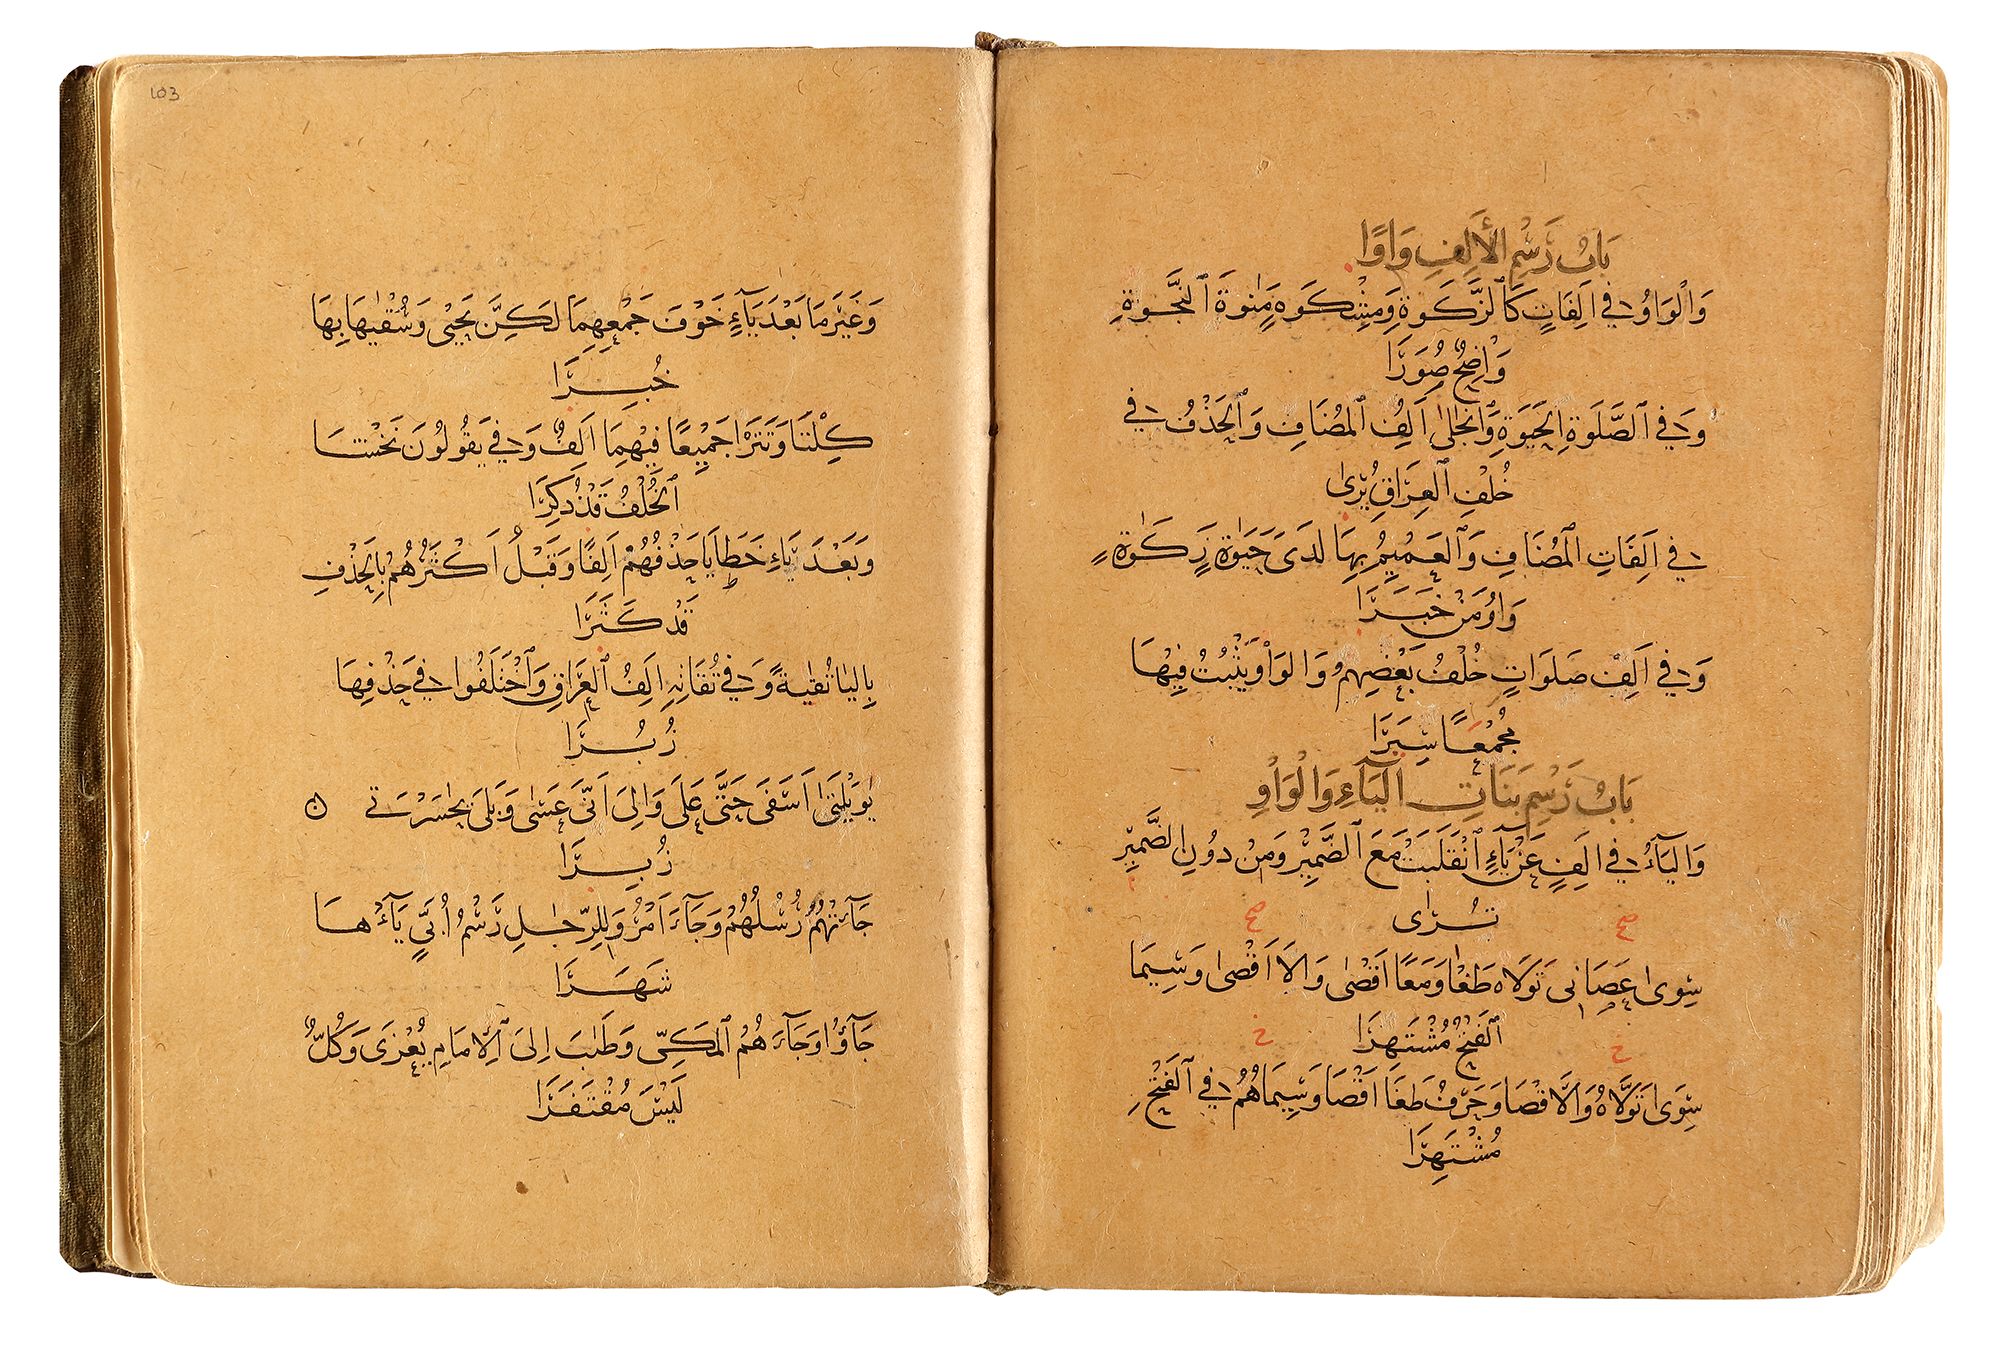 بَابُ رَسْمِ الْأَلِفِ وَاوًا
وَالْوَاوُ فِي أَلِفَاتٍ كَالزَّكَوةِ وَمِشْكَوةِ مَنَوةَ النَّجَوةِ
وَاضِحٌ صُوَرَا
وَفِي الصَّلَوةِ الْحَيَوةِ وَانْجَلَى أَلِفُ الْمُضَافِ وَالْحَذْفُ فِي
خُلْفِ الْعِرَاقِ يُرَى
فِي أَلِفَاتِ الْمُضَافِ وَالْعَمِيمُ بِهَا لَدَى حَيَوةٍ زَكَوةٍ
وَاوُ مَنْ خَبَرَا
وَفِي أَلِفْ صَلَوَاتٍ خُلْفُ بَعْضِهِمُ وَالْوَاوُ يَثْبُتُ فِيهَا
مُجْمَعًا سِيَرَا
بَابُ رَسْمِ بَنَاتِ الْيَاءِ وَالْوَاوِ
وَالْيَاءُ فِي أَلِفٍ عَنْ يَاءٍ انْقَلَبَتْ مَعَ الضَّمِيرِ وَمِنْ دُونِ الضَّمِيرِ
تُرَى
سِوَى عَصَانِى تَوَلَّاهُ طَغَا وَمَعًا أَقْصَى وَالْأَقْصَى وَسِيمَا
الْفَتْحُ مُشْتَهِرَا
سِوَى تَوَلَّاهُ وَالْأَقْصَا وَحَرْفُ طَغَا أَقْصَا وَسِيمَاهُمُ فِي الْفَتْحِ
مُشْتَهِرَا
103
وَغَيْرَ مَا بَعْدَ يَاءٍ خَوْفَ جَمْعِهِمَا لَكِنَّ يَحْيَى وَسُقْيَهَا بِهَا
خُبِرَا
كِلْتَا وَتَتْرَا جَمِيعًا فِيهِمَا أَلِفٌ وَفِي يَقُولُونَ نَخْشَا
الْخُلْفُ قَدْ ذُكِرَا
وَبَعْدَ يَاءِ خَطَايَا حَذْفُهُمْ أَلِفًا وَقَبْلُ أَكْثَرُهُمْ بِالْحَذْفِ
قَدْ كَثُرَا
بِالْيَا تُقَيةً وَفِي تُقَاتِهِ أَلِفُ الْعِرَاقِ وَاخْتَلَفُوا فِي حَذْفِهَا
زُبُرَا
يَوَيْلَتَى أَسَفَى حَتَّى عَلَى وَإِلَى أَنَّى عَسَى وَبَلَى يَحَسْرَتَى
زُبِرَا
جَاءَتْهُمُ رُسْلُهُمْ وَجَاءَ أَمْرُ وَلِلرِّجَالِ رَسْمُ أُبَيٍّ يَاءَهَا
شَهَرَا
جَاؤُا وَجَاءَهُمُ الْمَكِّي وَطَابَ إِلَى الْإِمَامِ يُعْزَى وَكُلٌّ
لَيْسَ مُقْتَفَرَا